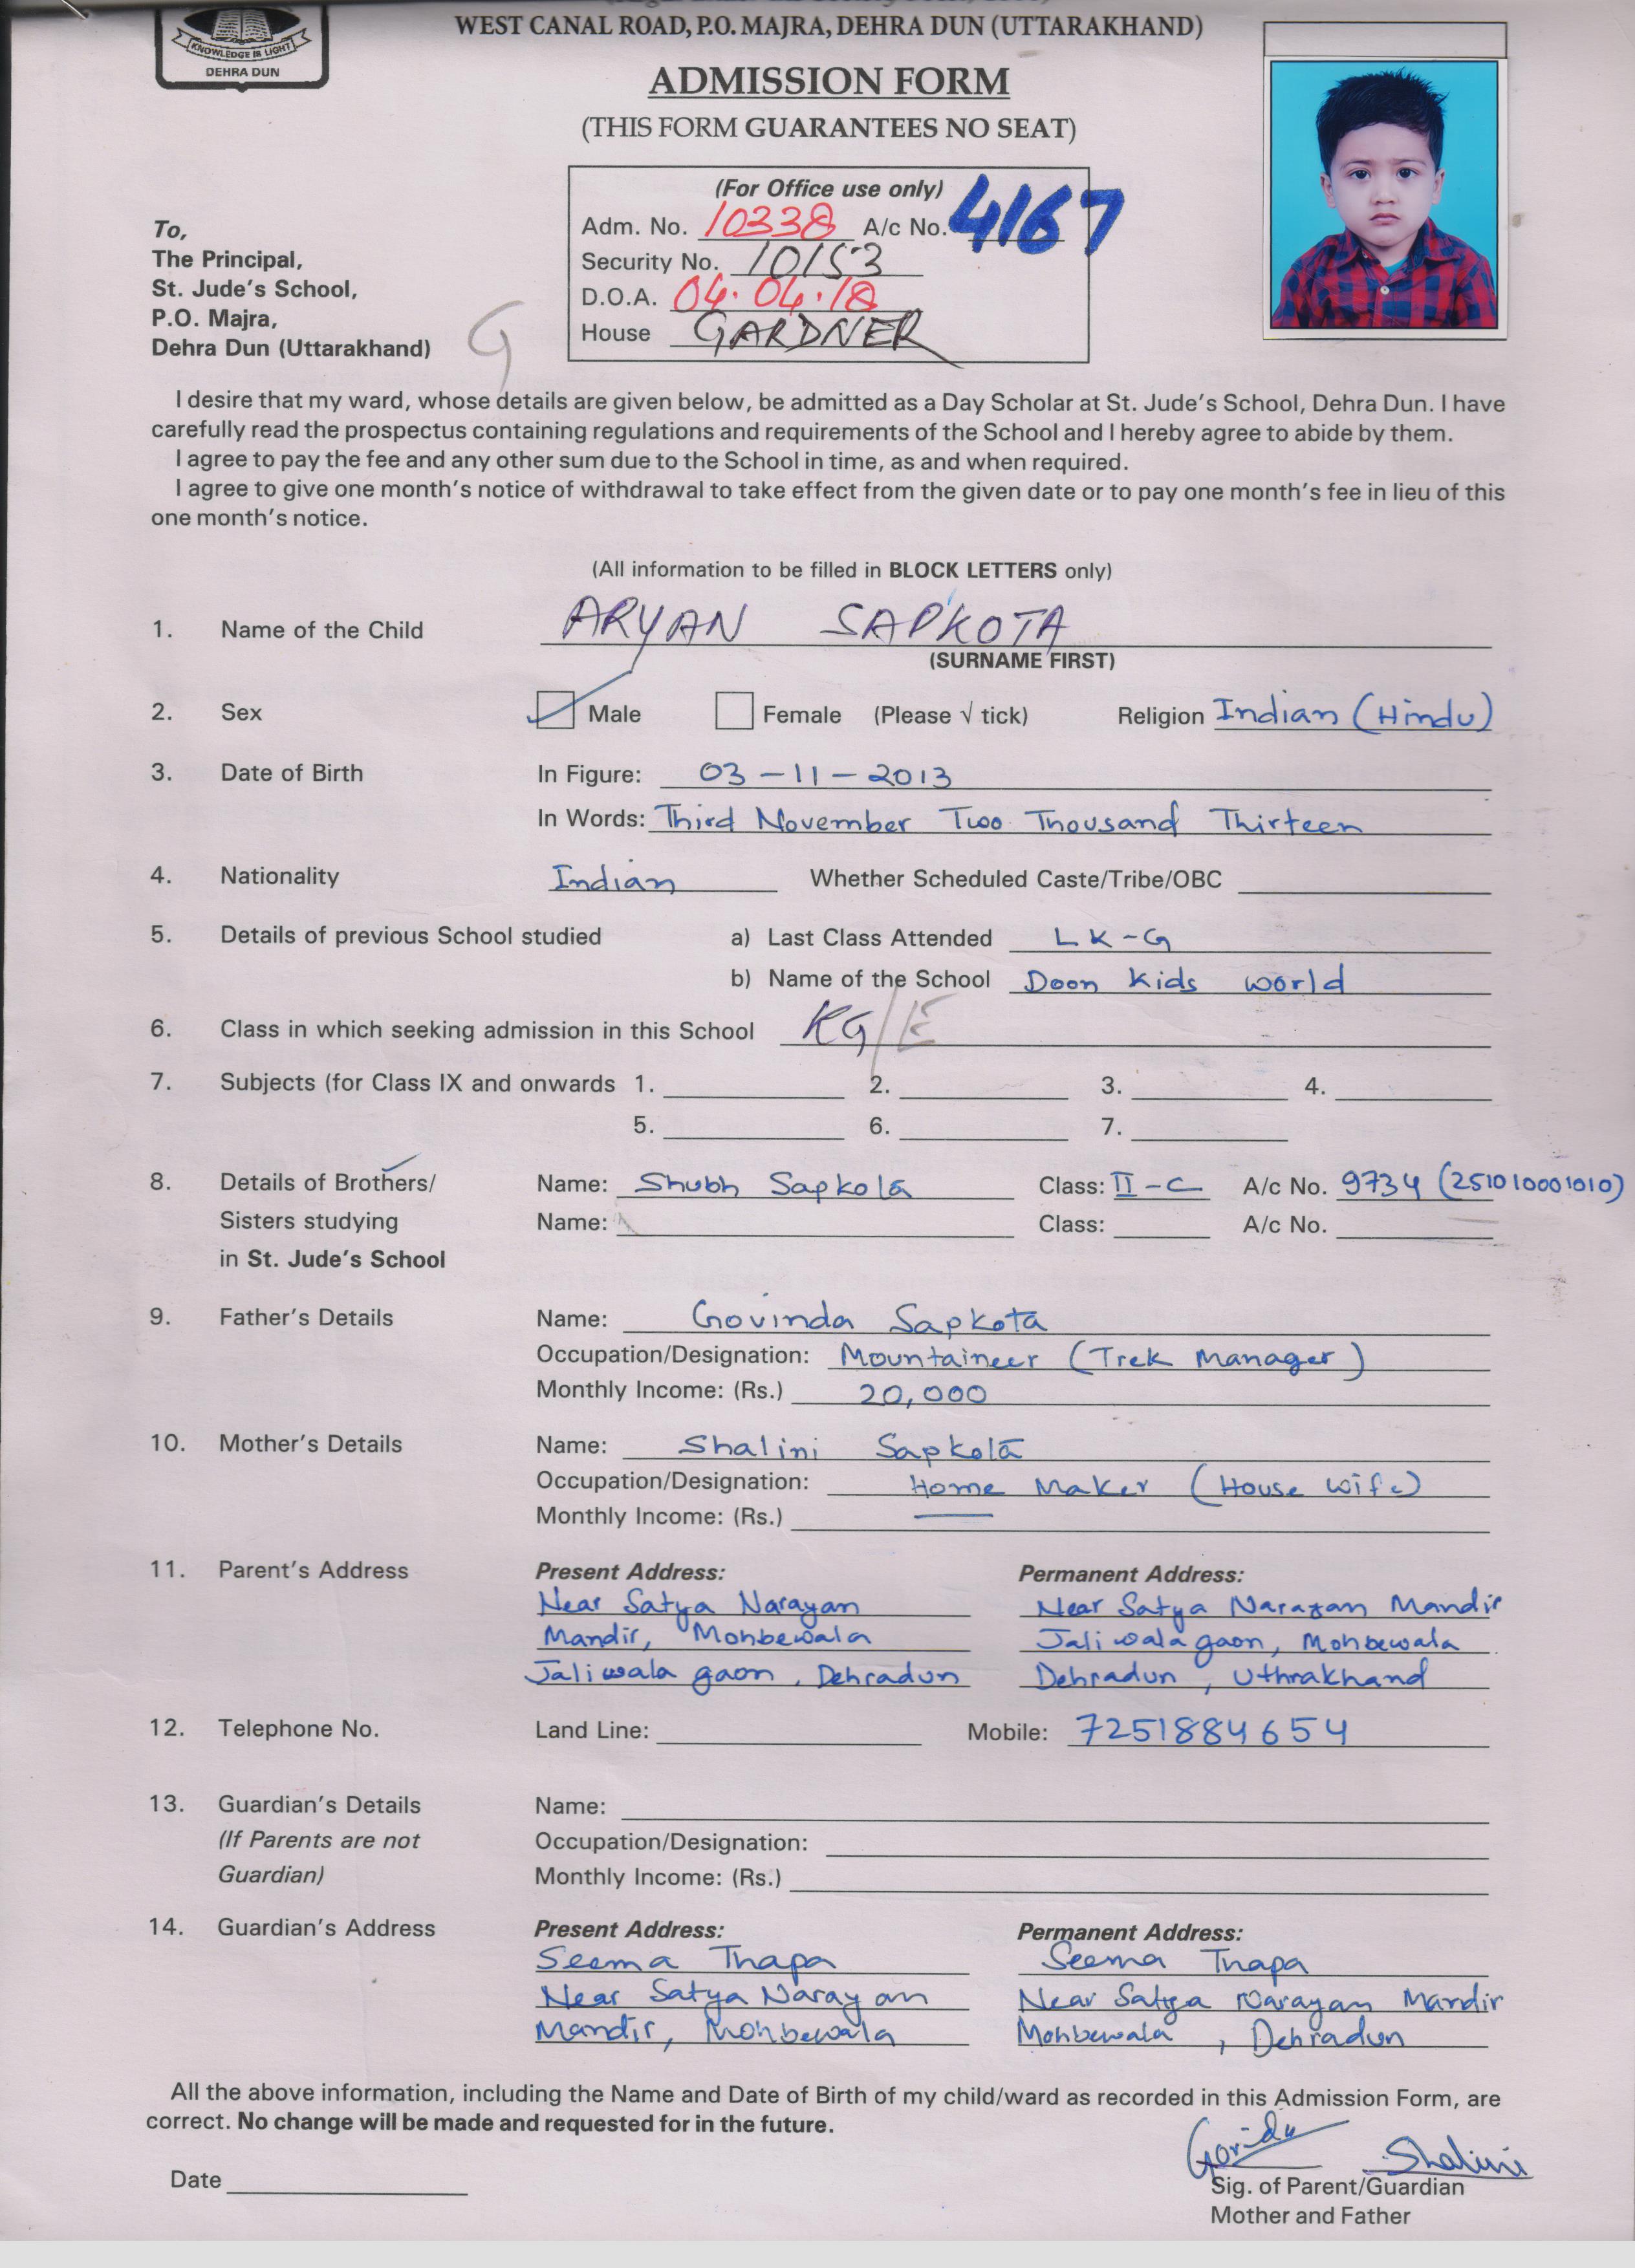 KNOWLEDGE IS LIGHT
DEHRA DUN
WEST CANAL ROAD, P.O. MAJRA, DEHRA DUN (UTTARAKHAND)
ADMISSION FORM
(THIS FORM GUARANTEES NO SEAT)
(For Office use only)
Adm. No. 10338 A/c No. 4167
Security No. 10153
D.O.A. 04.04.18
House GARDNER
To,
The Principal,
St. Jude's School,
P.O. Majra,
Dehra Dun (Uttarakhand)
G
I desire that my ward, whose details are given below, be admitted as a Day Scholar at St. Jude's School, Dehra Dun. I have
carefully read the prospectus containing regulations and requirements of the School and I hereby agree to abide by them.
I agree to pay the fee and any other sum due to the School in time, as and when required.
I agree to give one month's notice of withdrawal to take effect from the given date or to pay one month's fee in lieu of this
one month's notice.
(All information to be filled in BLOCK LETTERS only)
1. Name of the Child ARYAN SAPKOTA
(SURNAME FIRST)
2. Sex Male Female (Please √ tick) Religion Indian (Hindu)
3. Date of Birth In Figure: 03-11-2013
In Words: Third November Two Thousand Thirteen
4. Nationality Indian Whether Scheduled Caste/Tribe/OBC
5. Details of previous School studied a) Last Class Attended LK-G
b) Name of the School Doon Kids world
6. Class in which seeking admission in this School KG/E
7. Subjects (for Class IX and onwards 1. 2. 3. 4.
5. 6. 7.
8. Details of Brothers/ Name: Shubh Sapkota Class: II-C A/c No. 9734 (251010001010)
Sisters studying Name: Class: A/c No.
in St. Jude's School
9. Father's Details Name: Govinda Sapkota
Occupation/Designation: Mountaineer (Trek Manager)
Monthly Income: (Rs.) 20,000
10. Mother's Details Name: Shalini Sapkota
Occupation/Designation: Home Maker (House wife)
Monthly Income: (Rs.)
11. Parent's Address Present Address: Permanent Address:
Near Satya Narayan Near Satya Narayan Mandir
Mandir, Mohbewala Jaliwala gaon, Mohbewala
Jaliwala gaon, Dehradun Dehradun, Uthrakhand
12. Telephone No. Land Line: Mobile: 7251884654
13. Guardian's Details Name:
(If Parents are not Occupation/Designation:
Guardian) Monthly Income: (Rs.)
14. Guardian's Address Present Address: Permanent Address:
Seema Thapa Seema Thapa
Near Satya Narayan Near Satya Narayan Mandir
Mandir, Mohbewala Mohbewala, Dehradun
All the above information, including the Name and Date of Birth of my child/ward as recorded in this Admission Form, are
correct. No change will be made and requested for in the future.
Govinda Shalini
Date Sig. of Parent/Guardian
Mother and Father